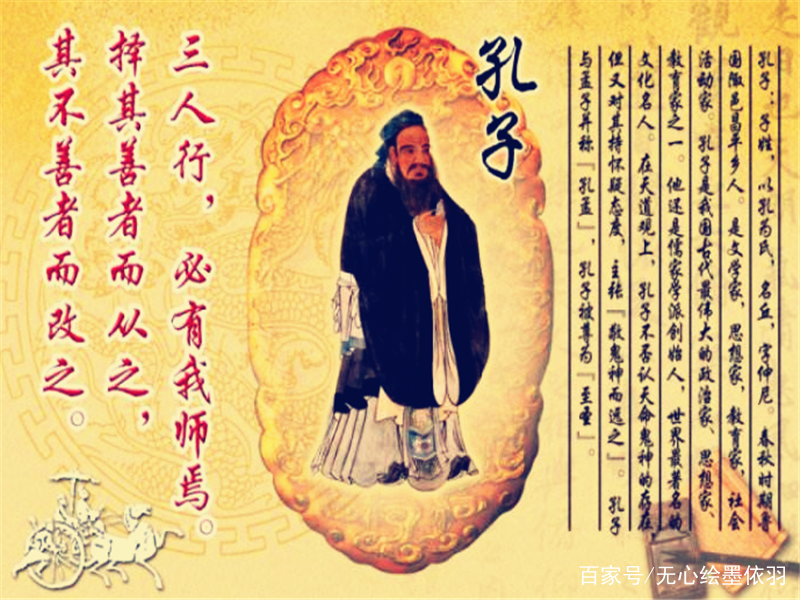 孔子：子姓，以孔为氏，名丘，字仲尼。春秋时期鲁
国陬邑昌平乡人。是文学家，思想家，教育家，社会
活动家。孔子是我国古代最伟大的政治家、思想家、
教育家之一。他还是儒家学派创始人，世界最著名的
文化名人。在天道观上，孔子不否认天命鬼神的存在，
但又对其持怀疑态度，主张『敬鬼神而远之』。孔子
与孟子并称『孔孟』，孔子被尊为『至圣』。
孔子
三人行，必有我师焉。
择其善者而从之，
其不善者而改之。
百家号/无心绘墨依羽